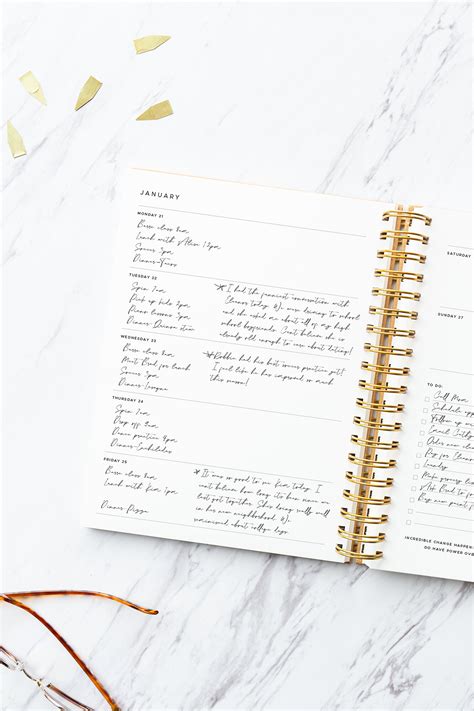 JANUARY
MONDAY 21
Barre class 8am
Lunch with Alison 12pm
Soccer 3pm
Dinner-Tacos
TUESDAY 22
Spin 7am
Pick up kids 2pm
Piano lessons 3pm
* I had the funniest conversation with
Eleanor today. We were driving to
school and she asked me about all of my high
school boyfriends. Can't believe she is
already old enough to care about dating!
WEDNESDAY 23
Barre class 8am
Meet Brad for lunch
Soccer 3pm
Dinner-Lasagna
* Robbie had his best soccer practice yet!
I feel like he has improved so much
this season!
THURSDAY 24
Spin 7am
Drop off 8am
Dance practice 4pm
Dinner-Enchiladas
FRIDAY 25
Barre class 8am
Lunch with Kim 1pm
Dinner Pizza
* It was so good to see Kim today. I
can't believe how long it's been since we
last got together. She's doing really well
in her new neighborhood. We
reminisced about college days.
SATURDAY
SUNDAY 27
TO DO:
Call Mom
Schedule
Follow up
Email
Order new
Pay for
Laundry
Ask Brad to
Buy new
INCREDIBLE CHANGE HAPPEN
DO HAVE POWER OV